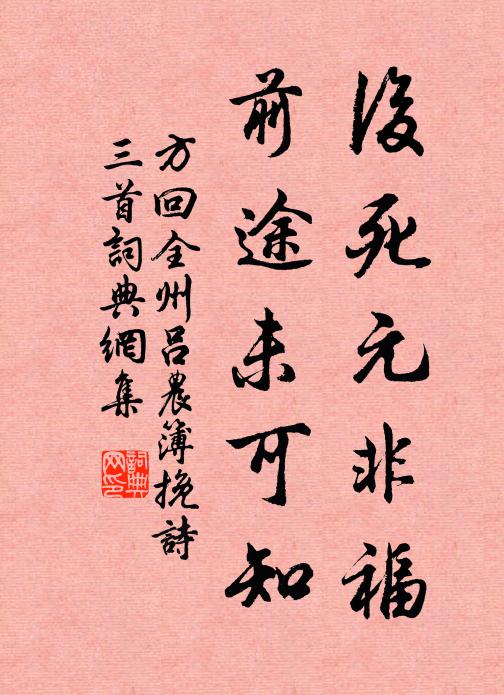 後死元非福
前途未可知
方回全州呂農簿挽詩
三首詞典網集
詞典網印